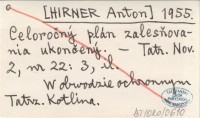 [HIRNER Anton] 1955.
Celoročný plán zalesňova-
nia ukončený. - Tatr. Nov.
2, nr 22: 3, il.
W obwodzie ochronnym
Tatrz. Kotlina.